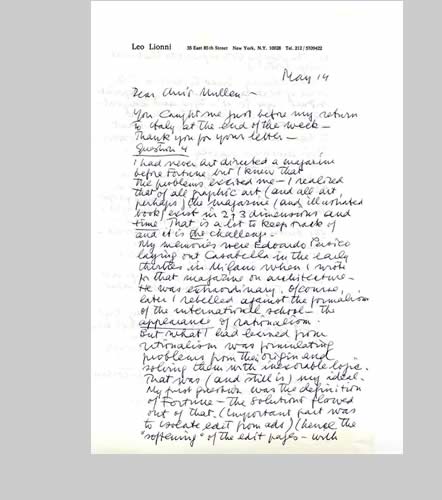 Leo Lionni 35 East 85th Street New York, N.Y. 10028 Tel. 212/5709422
May 14
Dear Chris Mullen —
You caught me just before my return
to Italy at the end of the week —
Thank you for your letter —
Question 4
I had never art directed a magazine
before Fortune but I knew that
the problems excited me — I realized
that of all graphic art (and all art,
perhaps) the magazine (and illustrated
book) exist in 2, 3 dimensions and
time. That is a lot to keep track of
and it is the challenge.
My memories were Edoardo Persico
laying out Casabella in the early
thirties in Milano when I wrote
for that magazine on architecture —
He was extraordinary. Of course,
later I rebelled against the formalism
of the international school — the
appearance of rationalism.
But what I had learned from
rationalism was formulating
problems from their origin and
solving them with inexorable logic.
That was (and still is) my ideal.
My first question was the definition
of Fortune — the solutions flowed
out of that. (Important part was
to isolate edit from ads) (hence the
"softening" of the edit pages — with